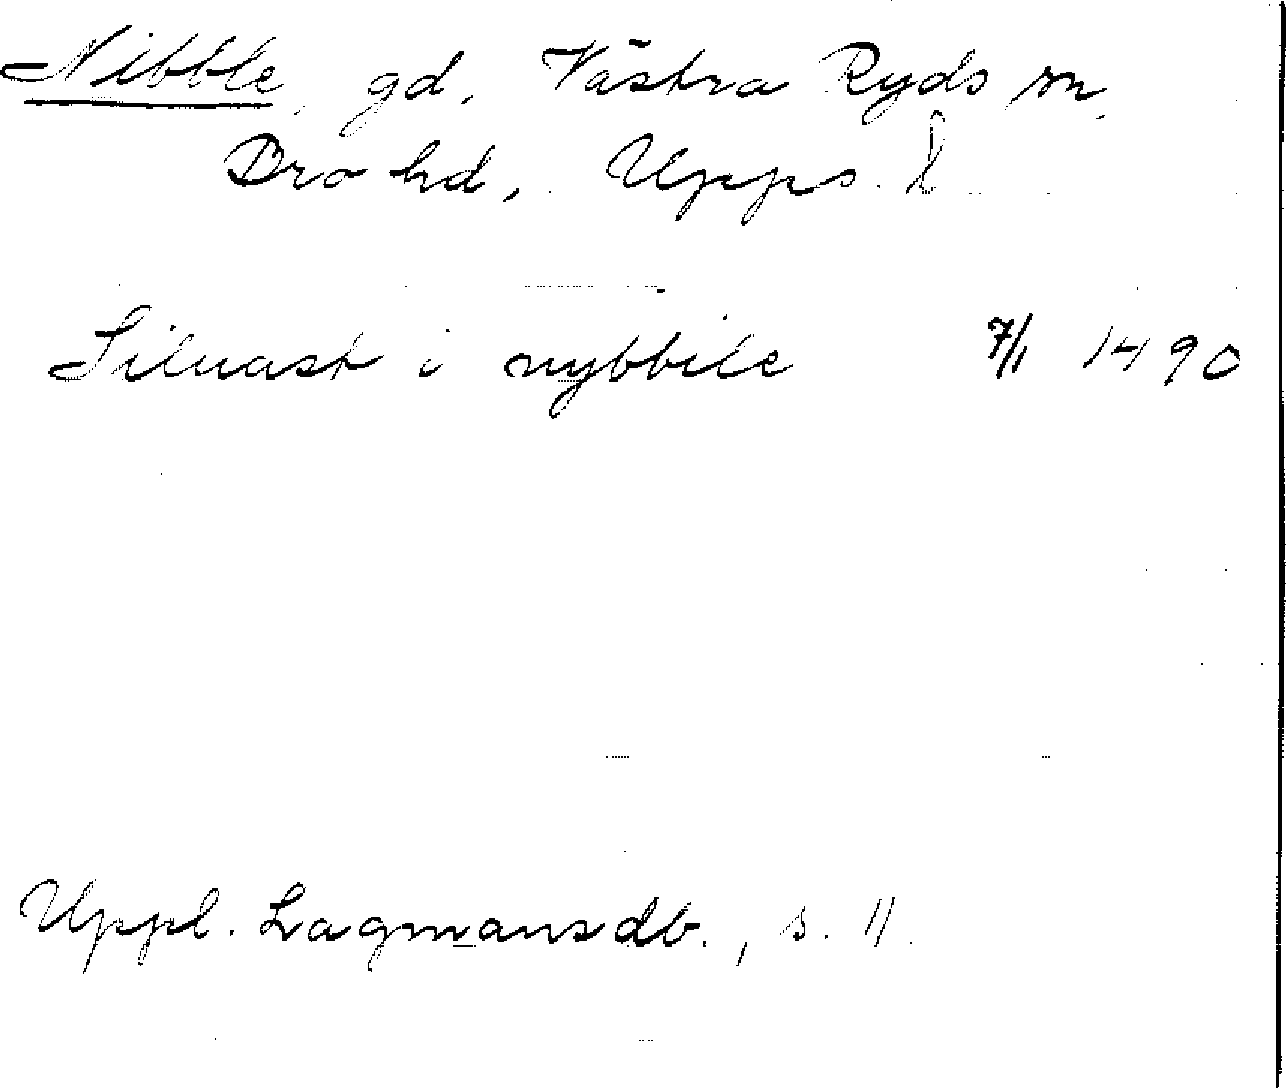 Nibble, gd, Västra Ryds sn,
Bro hd, Upps. l
Siluast i nybbile 7/1 1490
Uppl. Lagmansdb., s. 11.